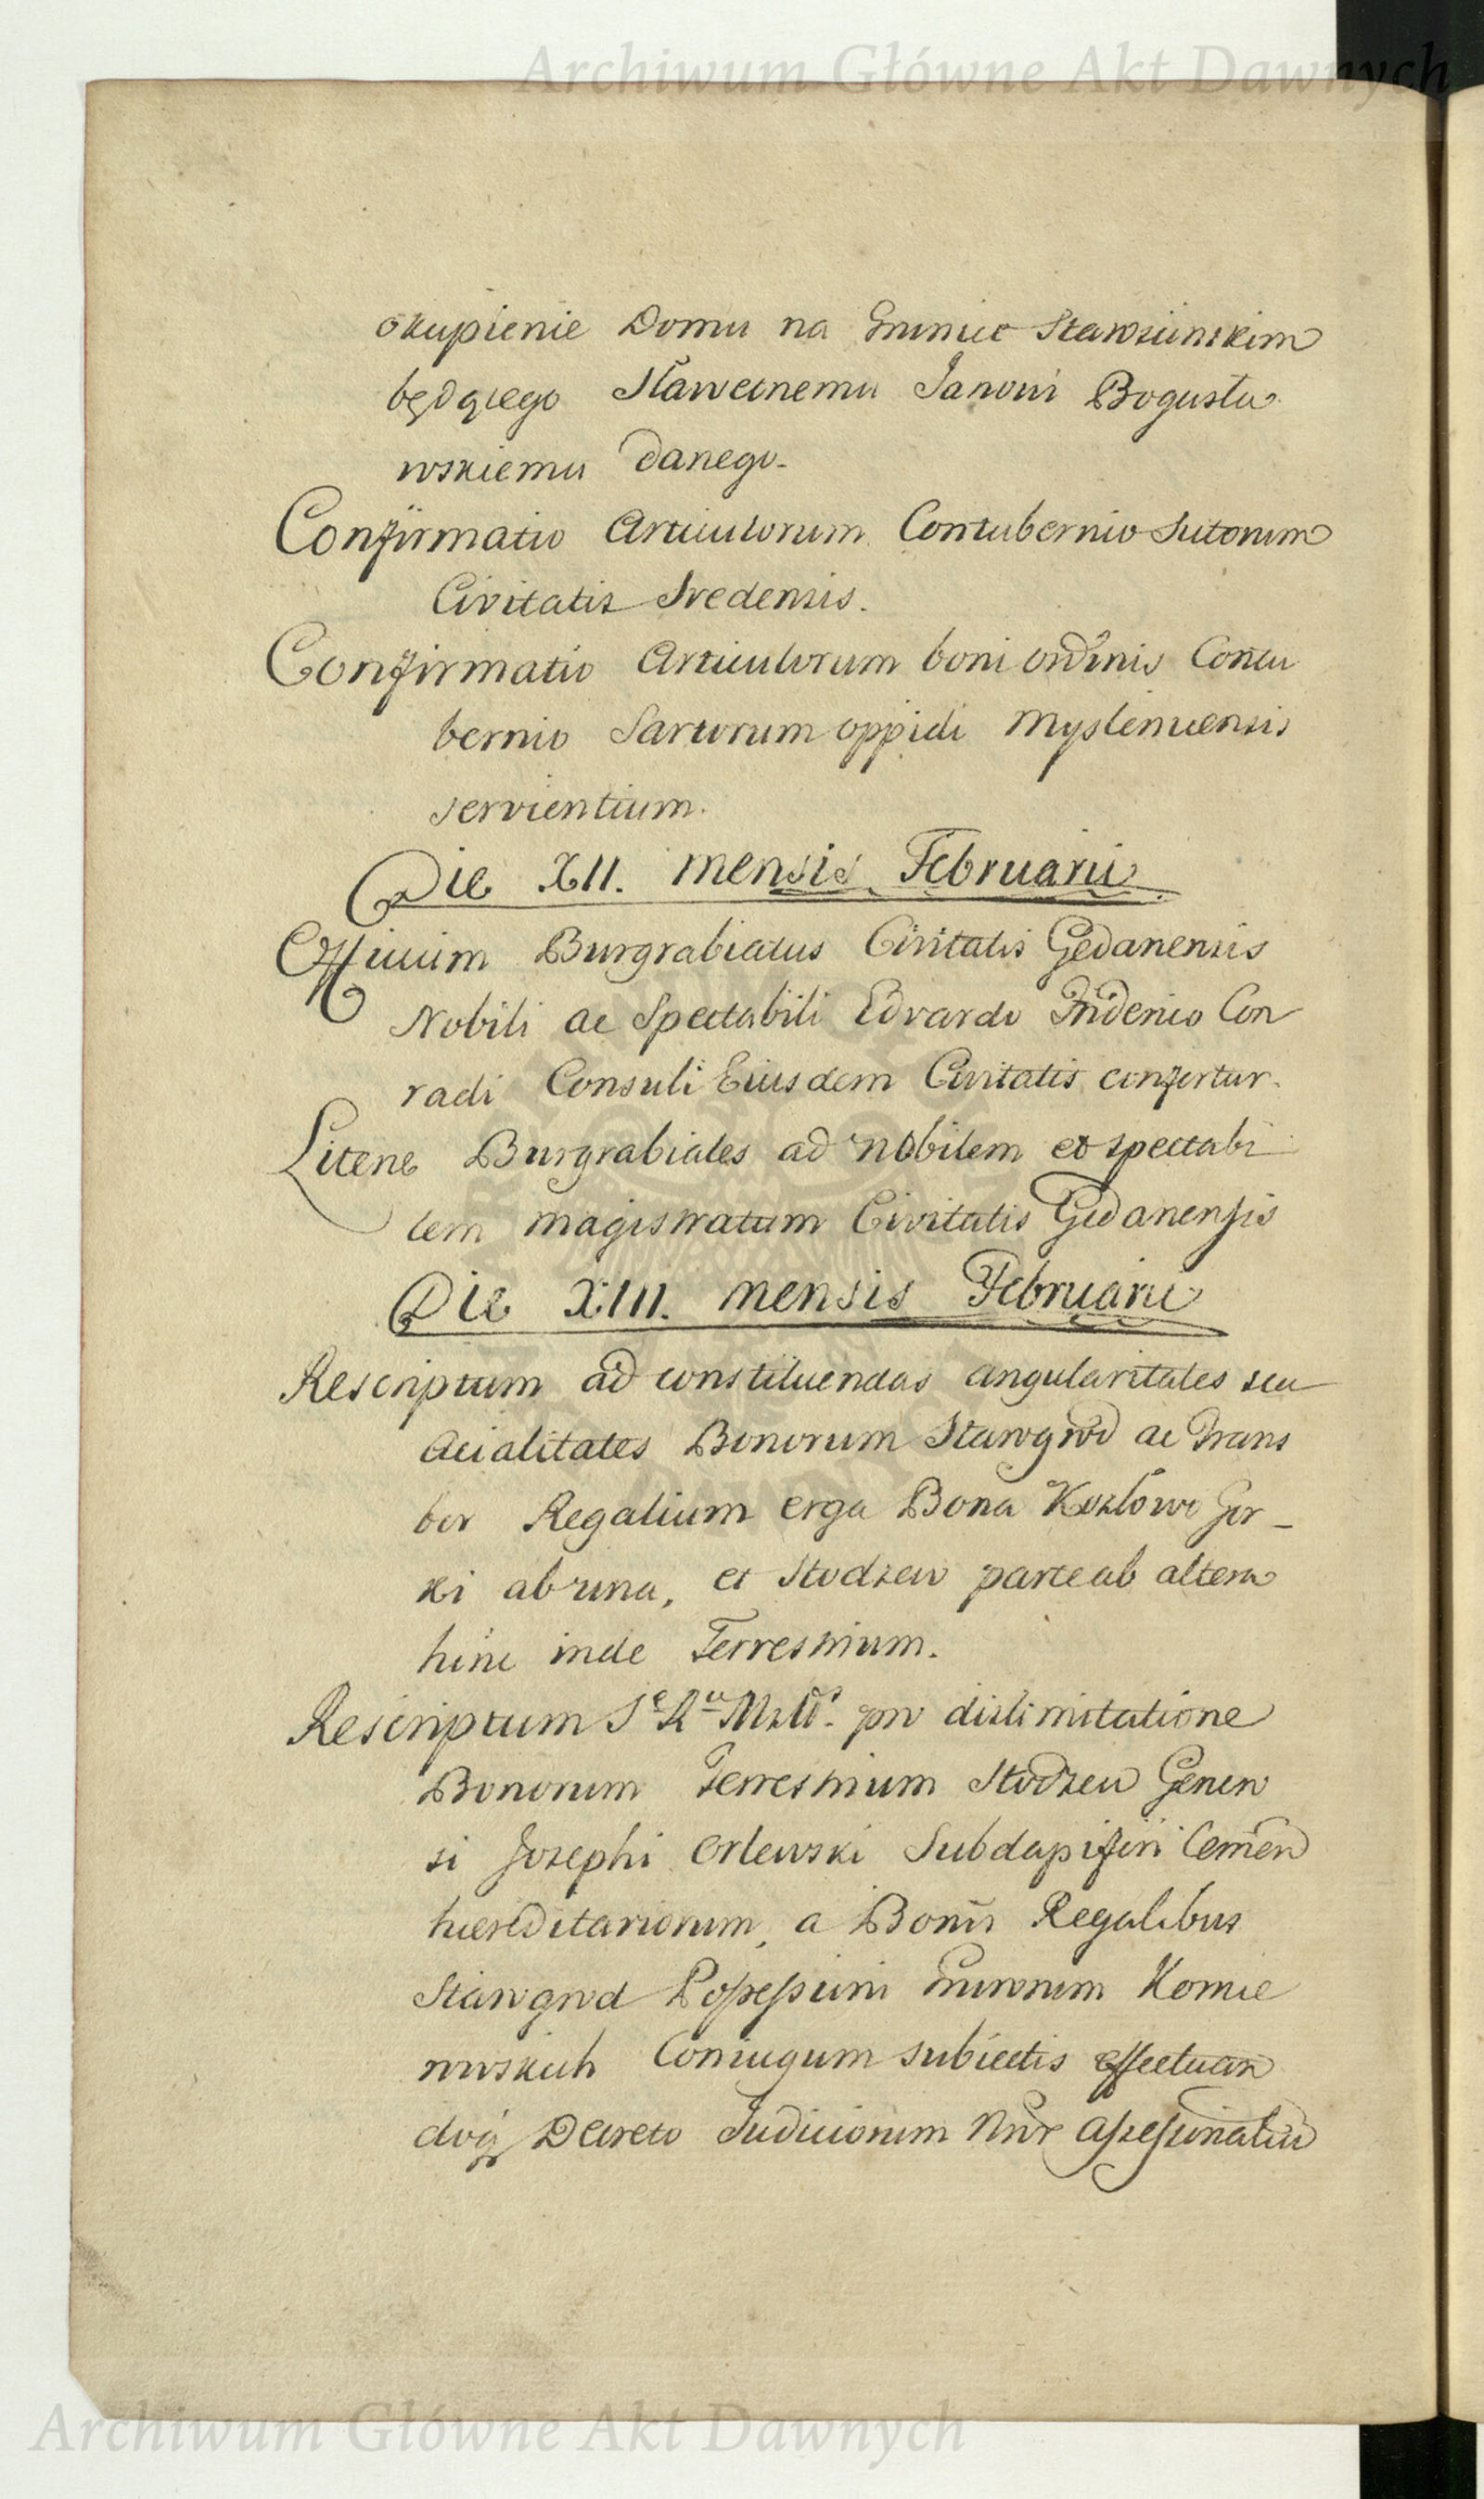 Archiwum Główne Akt Dawnych
okupienie Domu na Gruncie Stawszinskim
będącego Sławetnemu Janowi Bogusła
wskiemu danego.
Confirmatio Articulorum Contubernio Sutorum
Civitatis Sredensis.
Confirmatio Articulorum boni ordinis Contu
bernio Sartorum oppidi Myslenicensis
servientium.
Die XII. mensis Februarii
Officium Burgrabiatus Civitatis Gedanensis
Nobili ac Spectabili Edvardo Friderico Con
radi Consuli Eiusdem Civitatis confertur.
Literae Burgrabiales ad nobilem et spectabi
lem magistratum Civitatis Gedanensis
Die XIII. mensis Februarii
Rescriptum ad constituendas angularitates seu
acialitates Bonorum Starogrod ac Trans
bor Regalium erga Bona Kozłowe Gor
ki ab una, et Stodzew parte ab altera
hinc inde Terrestrium.
Rescriptum pro dislimitatione
Bonorum Terrestrium Stodzew Genero
si Josephi Orlewski Subdapiferi
haereditariorum, a Bonis Regalibus
Starogrod Possessioni Komie
rowskich Coniugum subiectis effectuan
doq Decreto Judiciorum Nror Assessorialiu
Archiwum Główne Akt Dawnych